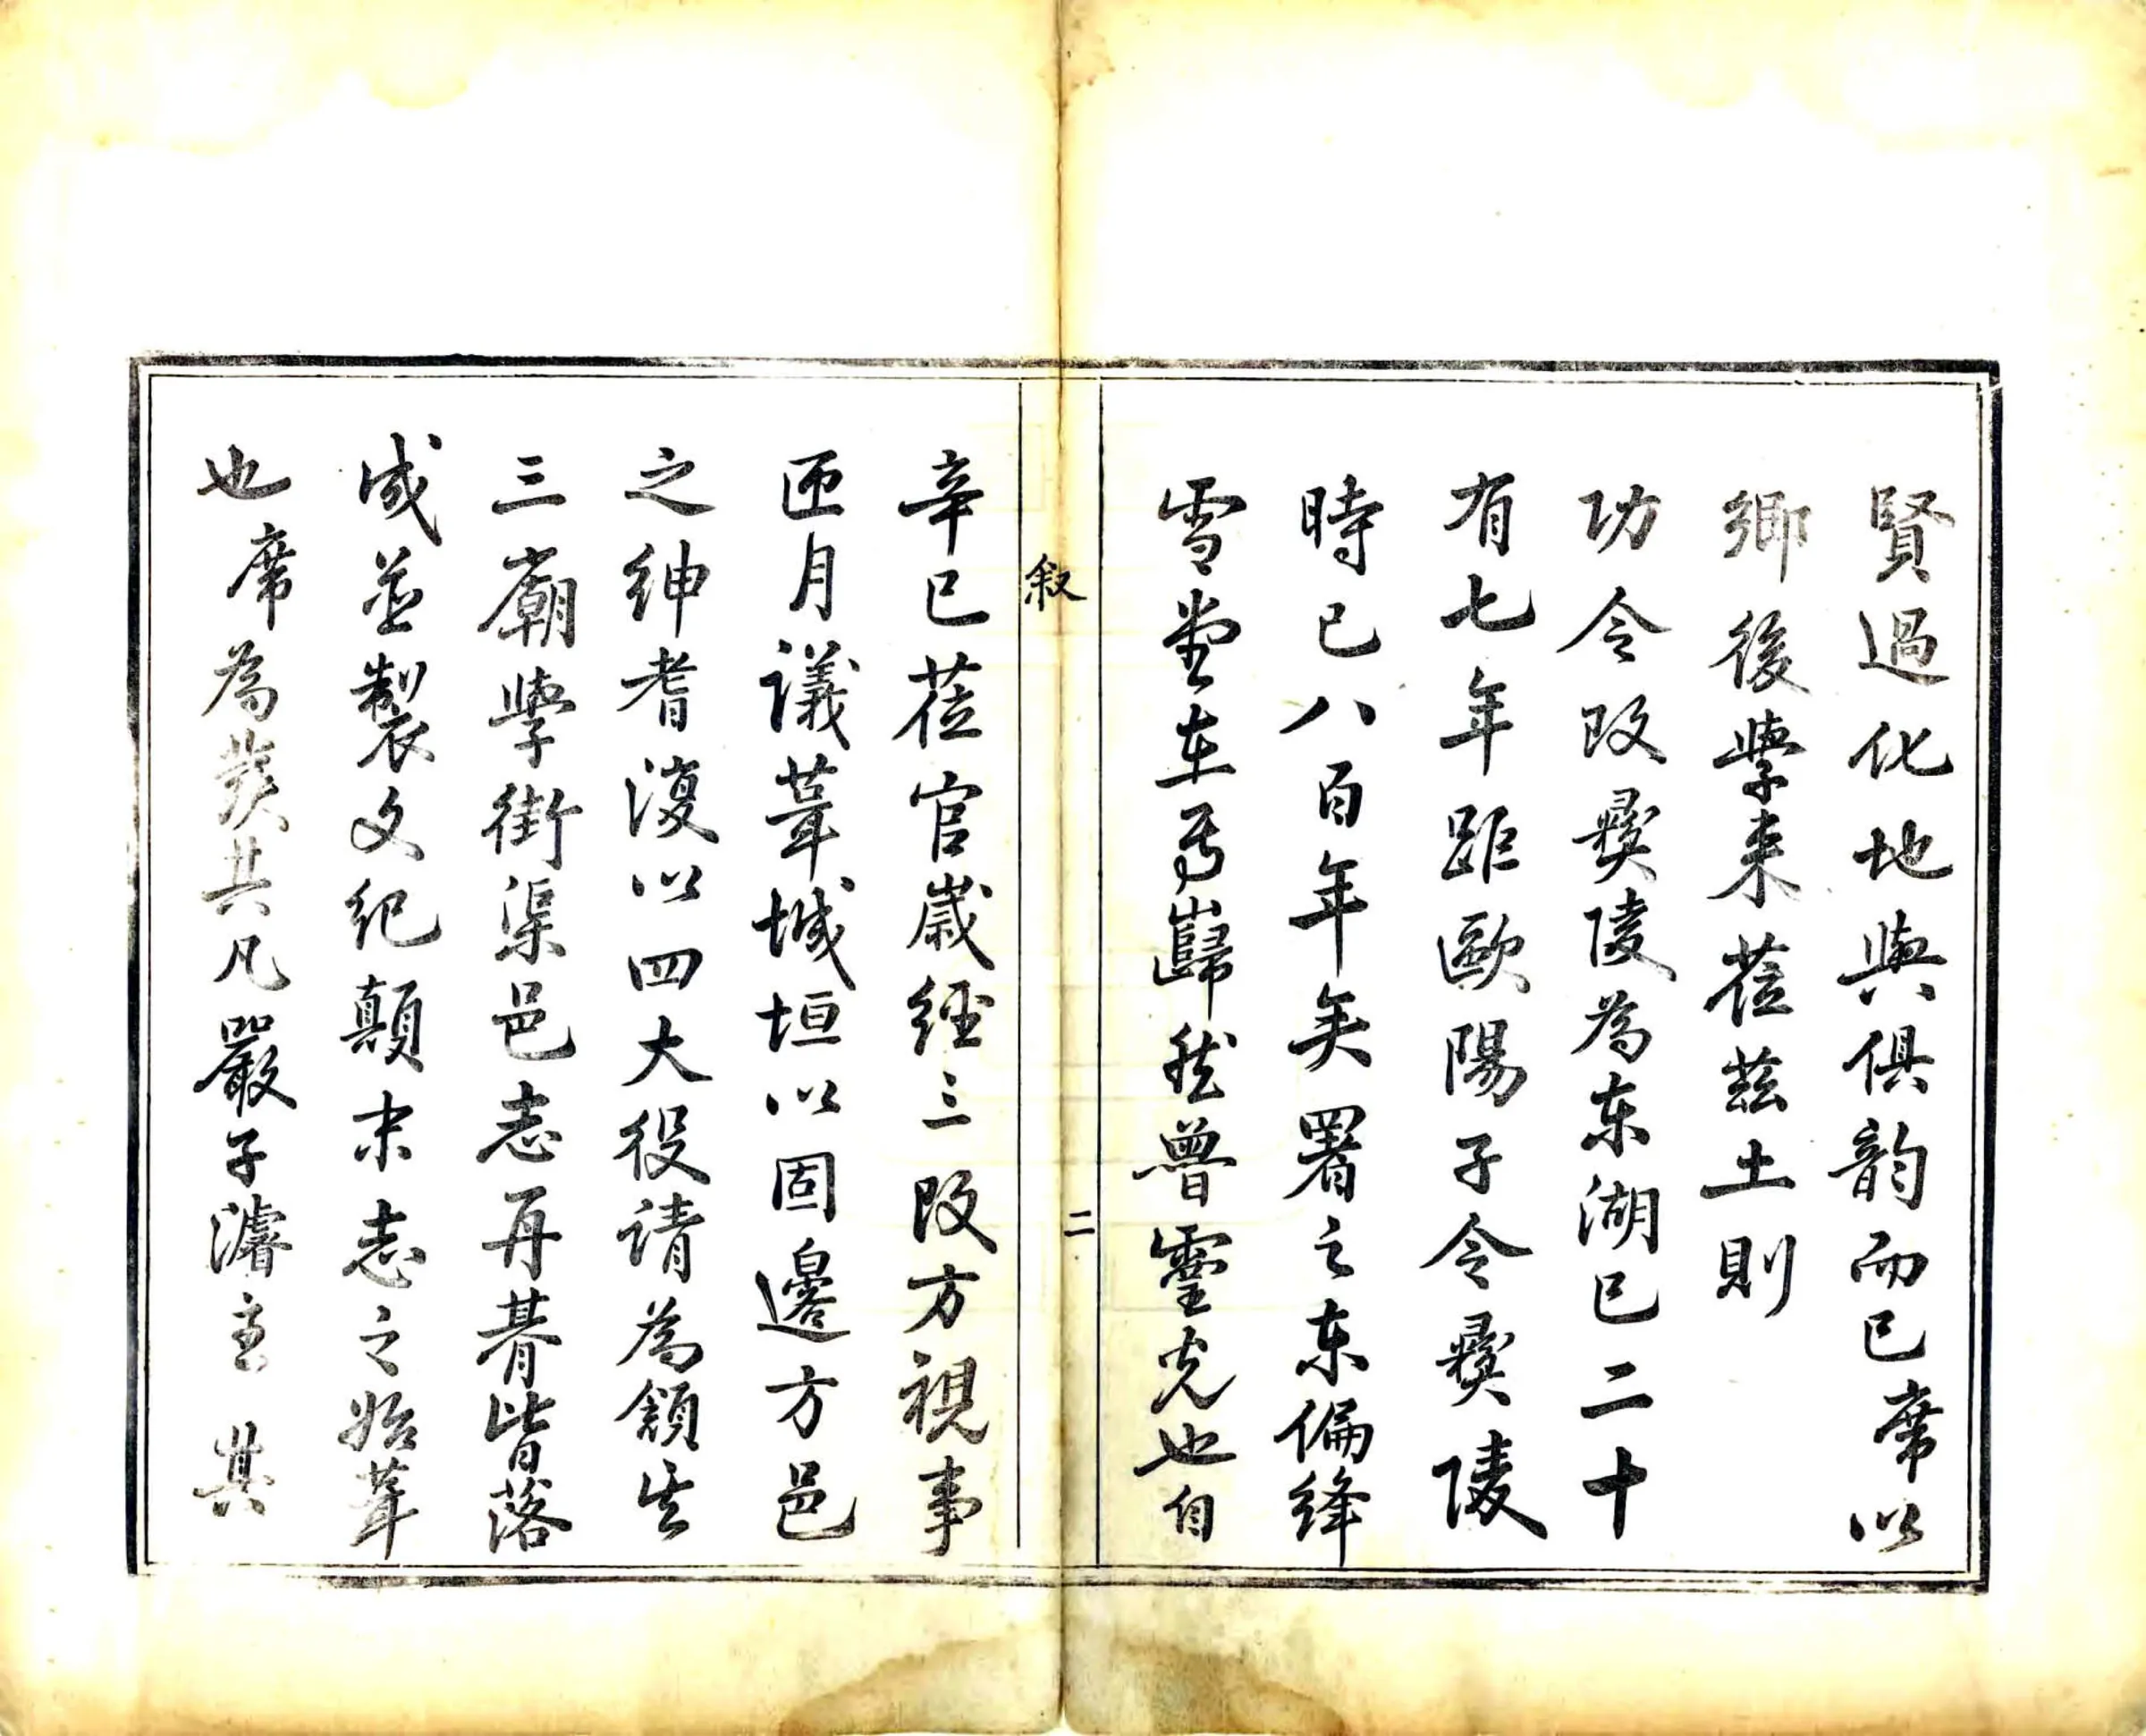 賢過化地與俱韵而已席以
鄉後學来莅茲土則
功令改彞陵為东湖已二十
有七年距歐陽子令彞陵
時已八百年矣署之东偏绛
雪堂在焉巋然魯靈光也自
叙
二
辛巳莅官歲經三改方視事
匝月議葺城垣以固邊方邑
之紳耆復以四大役请為頟其
三廟學街渠邑志再朞皆落
成並製文紀顛末志之始葺
也席為發其凡嚴子濬主其